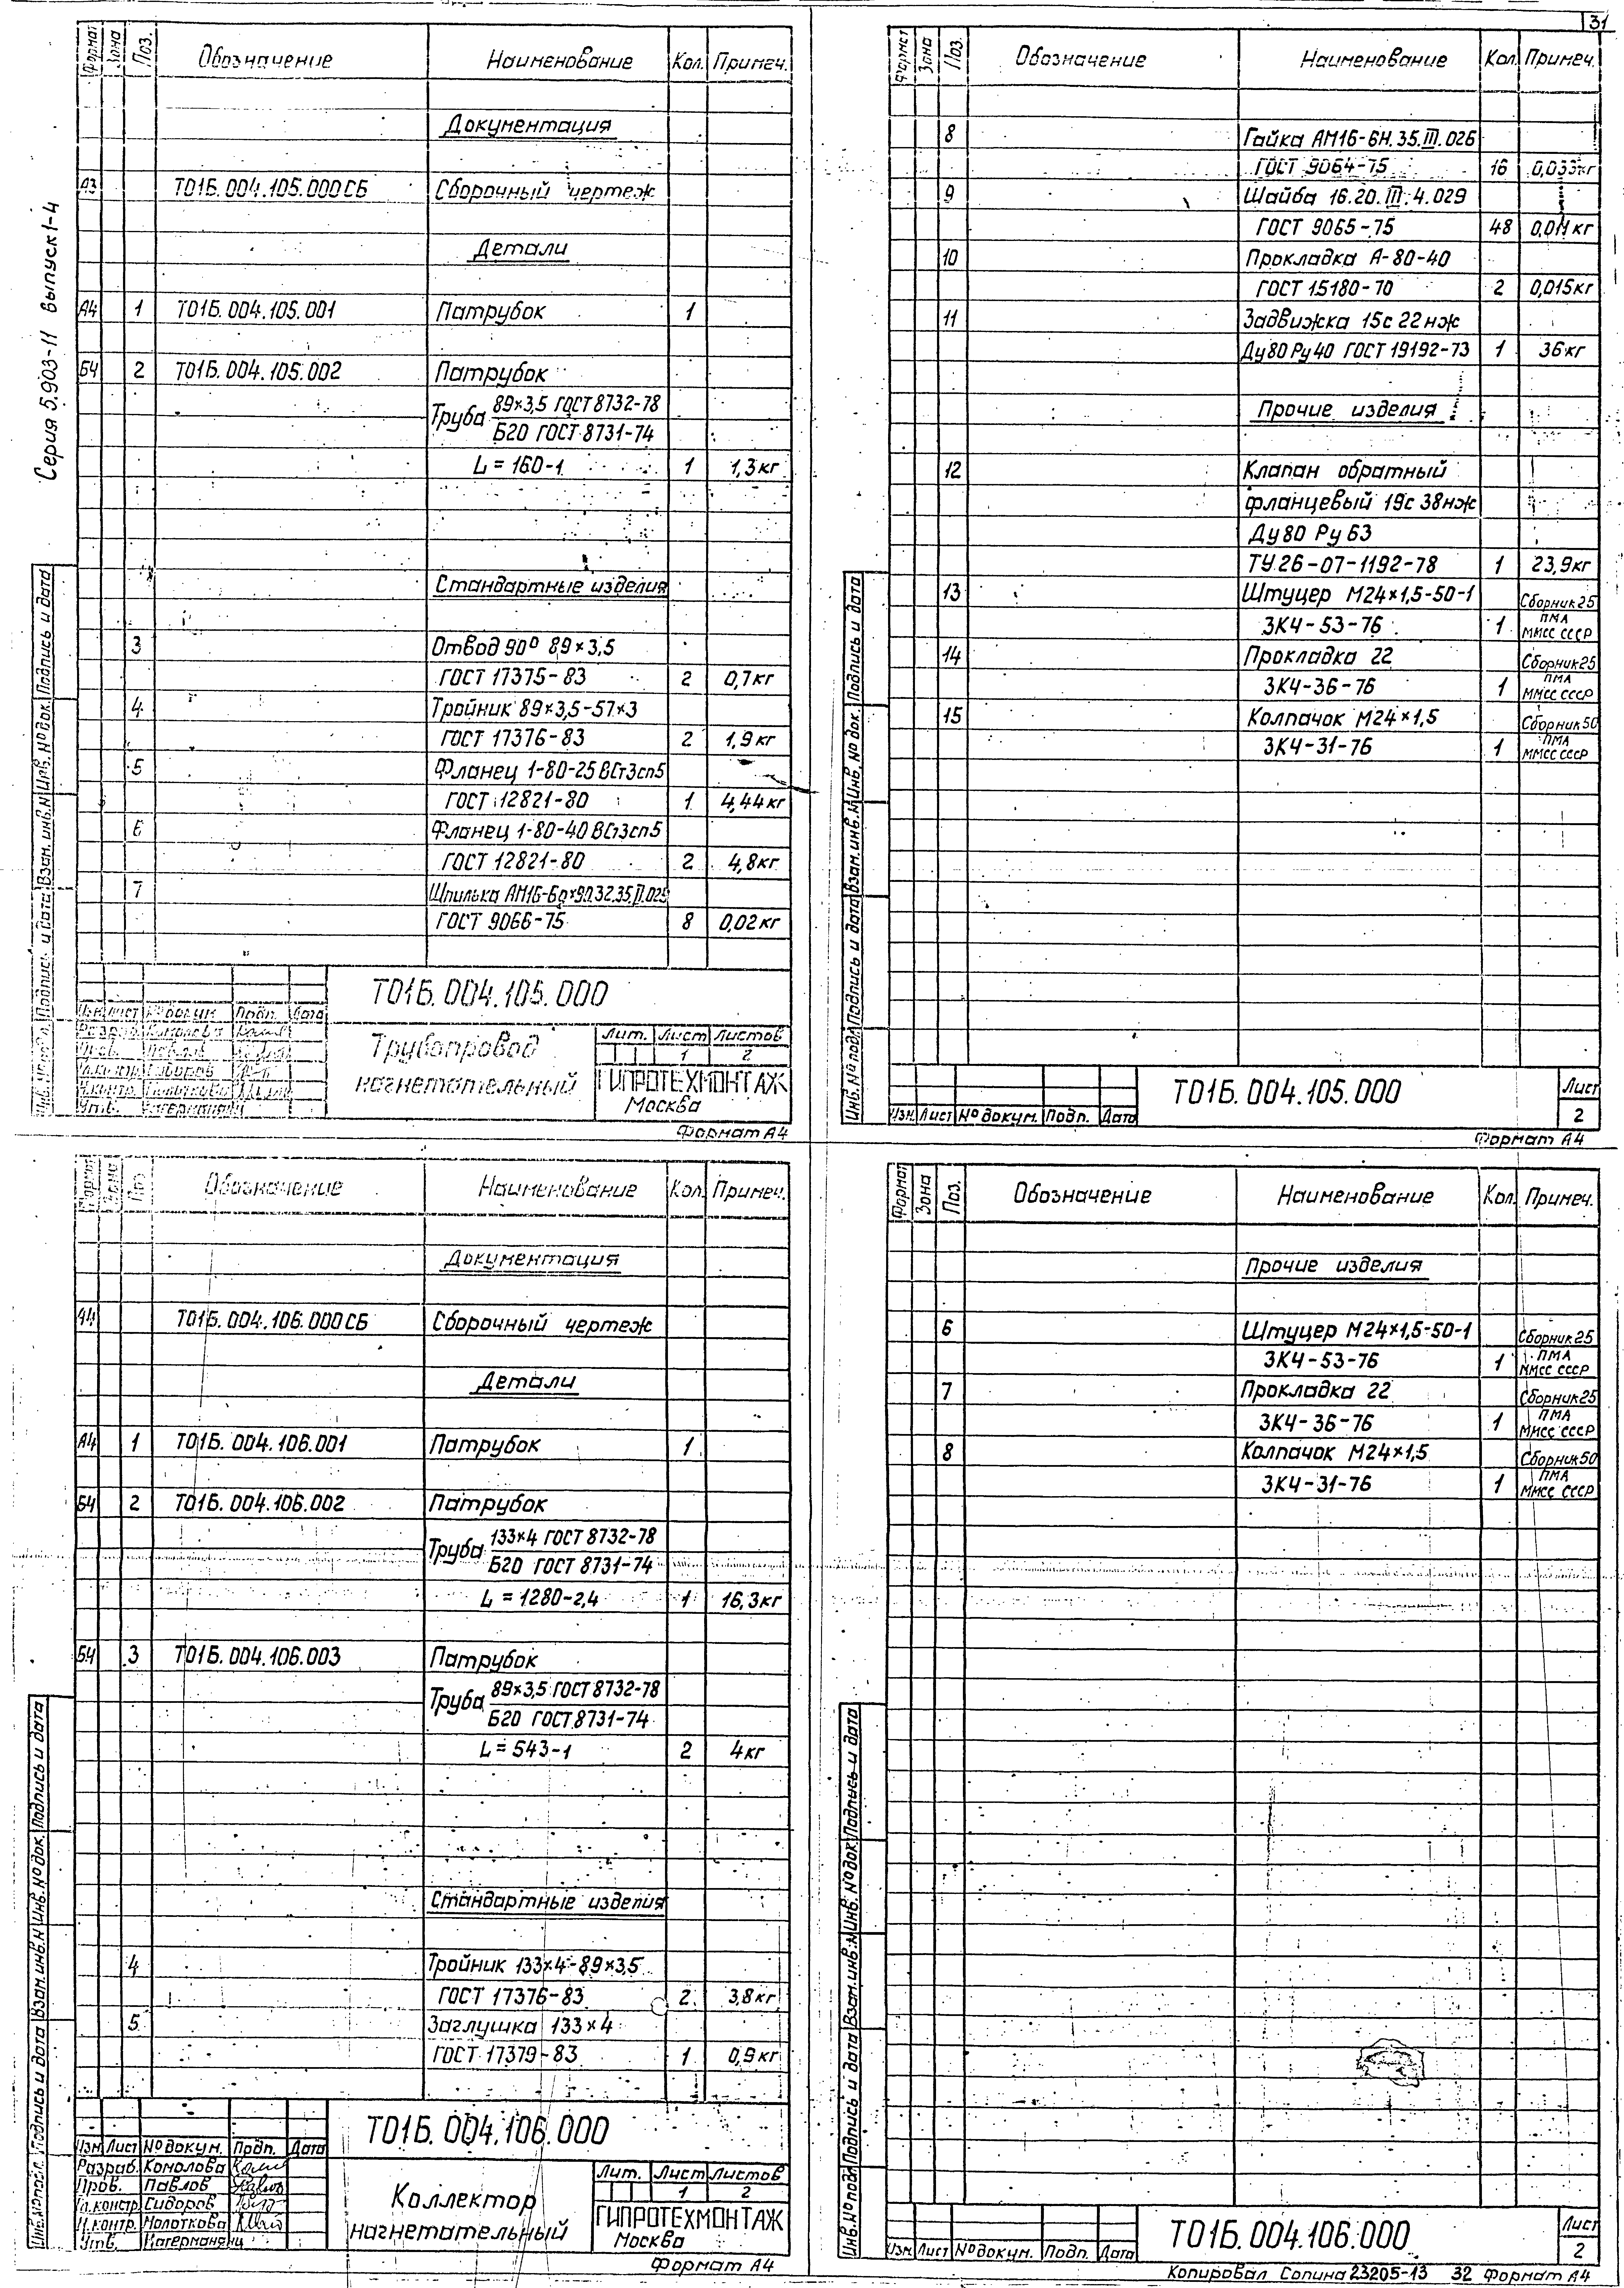 31
Серия 5.903-11 выпуск 1-4
Формат Зона Поз. Обозначение Наименование Кол. Примеч.
Документация
А3 Т01Б.004.105.000СБ Сборочный чертеж
Детали
А4 1 Т01Б.004.105.001 Патрубок 1
Б4 2 Т01Б.004.105.002 Патрубок
Труба 89×3,5 ГОСТ 8732-78
Б20 ГОСТ 8731-74
L = 160-1 1 1,3кг
Стандартные изделия
3 Отвод 90° 89×3,5
ГОСТ 17375-83 2 0,7кг
4 Тройник 89×3,5-57×3
ГОСТ 17376-83 2 1,9кг
5 Фланец 1-80-25 ВСт3сп5
ГОСТ 12821-80 1 4,44кг
6 Фланец 1-80-40 ВСт3сп5
ГОСТ 12821-80 2 4,8кг
7 Шпилька АМ16-6g×90.32.35.III.029
ГОСТ 9066-75 8 0,02кг
Т01Б.004.105.000
Трубопровод
нагнетательный
Лит. Лист Листов
1 2
ГИПРОТЕХМОНТАЖ
Москва
Формат А4
Инв.№ подл. Подпись и дата Взам.инв.№ Инв.№ док. Подпись и дата
Формат Зона Поз. Обозначение Наименование Кол. Примеч.
8 Гайка АМ16-6Н.35.III.026
ГОСТ 9064-75 16 0,033кг
9 Шайба 16.20.III.4.029
ГОСТ 9065-75 48 0,011кг
10 Прокладка А-80-40
ГОСТ 15180-70 2 0,015кг
11 Задвижка 15с 22нж
Ду80 Ру40 ГОСТ 19192-73 1 36кг
Прочие изделия
12 Клапан обратный
фланцевый 19с 38нж
Ду80 Ру 63
ТУ.26-07-1192-78 1 23,9кг
13 Штуцер М24×1,5-50-1 Сборник 25
ЗК4-53-76 1 ПМА
ММСС СССР
14 Прокладка 22 Сборник 25
ЗК4-36-76 1 ПМА
ММСС СССР
15 Колпачок М24×1,5 Сборник 50
ЗК4-31-76 1 ПМА
ММСС СССР
Изм. Лист № докум. Подп. Дата
Т01Б.004.105.000
Лист
2
Формат А4
Инв.№ подл. Подпись и дата Взам.инв.№ Инв.№ док. Подпись и дата
Формат Зона Поз. Обозначение Наименование Кол. Примеч.
Документация
А4 Т01Б.004.106.000СБ Сборочный чертеж
Детали
А4 1 Т01Б.004.106.001 Патрубок 1
Б4 2 Т01Б.004.106.002 Патрубок
Труба 133×4 ГОСТ 8732-78
Б20 ГОСТ 8731-74
L = 1280-2,4 1 16,3кг
Б4 3 Т01Б.004.106.003 Патрубок
Труба 89×3,5 ГОСТ 8732-78
Б20 ГОСТ 8731-74
L = 543-1 2 4кг
Стандартные изделия
4 Тройник 133×4-89×3,5
ГОСТ 17376-83 2 3,8кг
5 Заглушка 133×4
ГОСТ 17379-83 1 0,9кг
Т01Б.004.106.000
Изм. Лист № докум. Подп. Дата
Разраб. Комолова
Пров. Павлов
Гл.констр. Сидоров
Н.контр. Молоткова
Утв.
Коллектор
нагнетательный
Лит. Лист Листов
1 2
ГИПРОТЕХМОНТАЖ
Москва
Формат А4
Инв.№ подл. Подпись и дата Взам.инв.№ Инв.№ док. Подпись и дата
Формат Зона Поз. Обозначение Наименование Кол. Примеч.
Прочие изделия
6 Штуцер М24×1,5-50-1 Сборник 25
ЗК4-53-76 1 ПМА
ММСС СССР
7 Прокладка 22 Сборник 25
ЗК4-36-76 1 ПМА
ММСС СССР
8 Колпачок М24×1,5 Сборник 50
ЗК4-31-76 1 ПМА
ММСС СССР
Изм. Лист № докум. Подп. Дата
Т01Б.004.106.000
Лист
2
Инв.№ подл. Подпись и дата Взам.инв.№ Инв.№ док. Подпись и дата
Копировал Сопина 23205-13 32 Формат А4